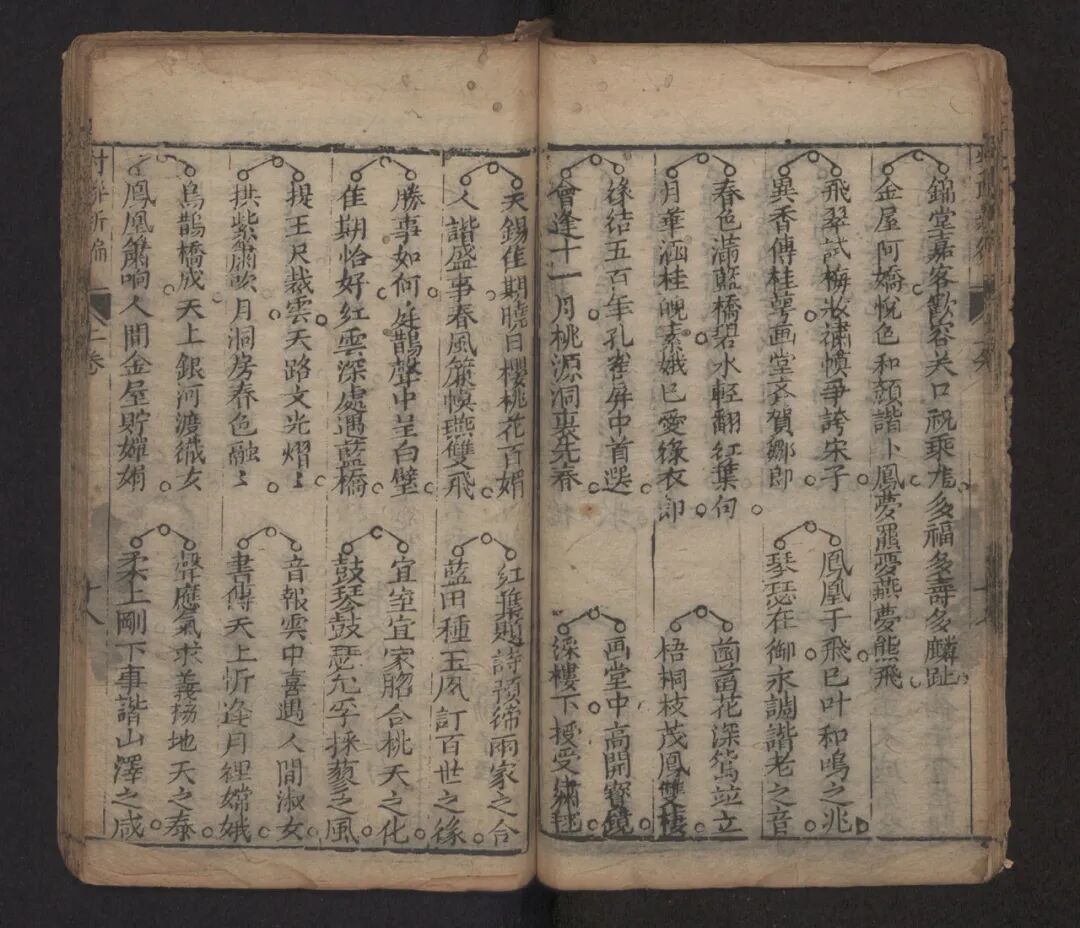 錦堂嘉客歡容关口祝乘龙多福多壽多麟趾
金屋阿嬌悅色和顏諧卜鳳夢羆夢燕夢熊飛
飛翠試梅妝繡幙爭誇宋子
異香傳桂萼画堂齐賀鄒郎
鳳凰于飛已叶和鳴之兆
琴瑟在御永調諧老之音
春色滿藍橋碧水輕翻红葉句
月華涵桂魄素娥已愛綠衣郎
菡萏花深鴛並立
梧桐枝茂鳳雙棲
緣结五百年孔雀屏中首選
會逢十一月桃源洞裏先春
画堂中高開寶鏡
綵樓下授受綉毬
天錫佳期曉日櫻桃花百媚
人諧盛事春風簾幙燕雙飛
红葉題詩預締兩家之合
藍田種玉夙訂百世之緣
勝事如何庭鵲聲中呈白璧
佳期恰好红雲深處遇藍橋
宜室宜家脗合桃夭之化
鼓琴鼓瑟允孚採蘩之風
提玉尺裁雲天路文光熠〻
拱紫簫吹月洞房春色融〻
音報雲中喜遇人間淑女
書傳天上忻逢月裡嫦娥
烏鵲橋成天上銀河渡織女
鳳凰簫响人間金屋貯嬋娟
聲應氣求義協地天之泰
柔上剛下事諧山澤之咸
對聯新編
上卷
十八